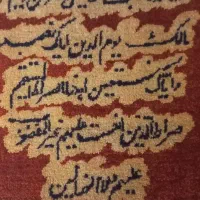 مالك يوم الدين اياك نعبد
واياك نستعين اهدنا الصراط المستقيم
صراط الذين انعمت عليهم غير المغضوب
عليهم ولا الضالين